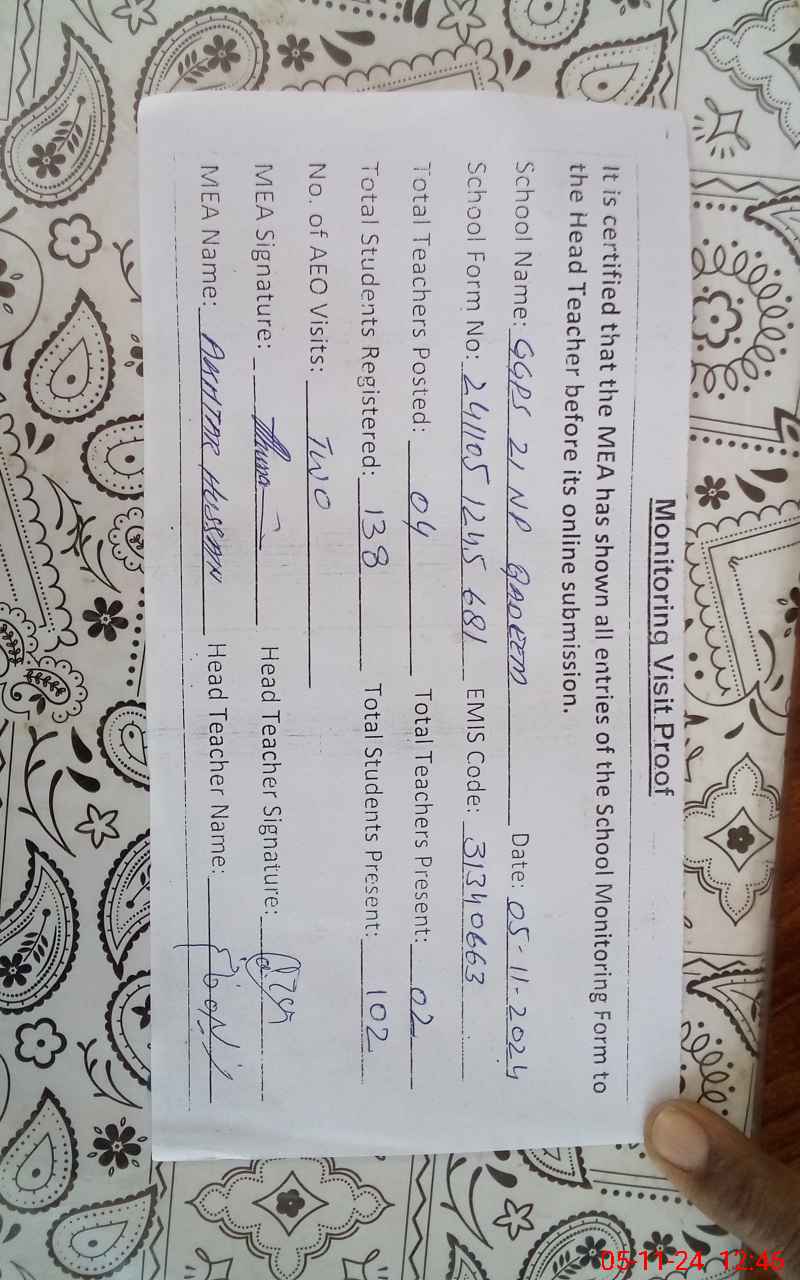 Monitoring Visit Proof
It is certified that the MEA has shown all entries of the School Monitoring Form to
the Head Teacher before its online submission.
School Name: GGPS 21 NP QADEEM Date: 05-11-2024
School Form No: 241105 1245 681 EMIS Code: 31340663
Total Teachers Posted: 04 Total Teachers Present: 02
Total Students Registered: 138 Total Students Present: 102
No. of AEO Visits: TWO
MEA Signature: Head Teacher Signature:
MEA Name: AKHTAR HUSSAIN Head Teacher Name:
05-11-24 12:46